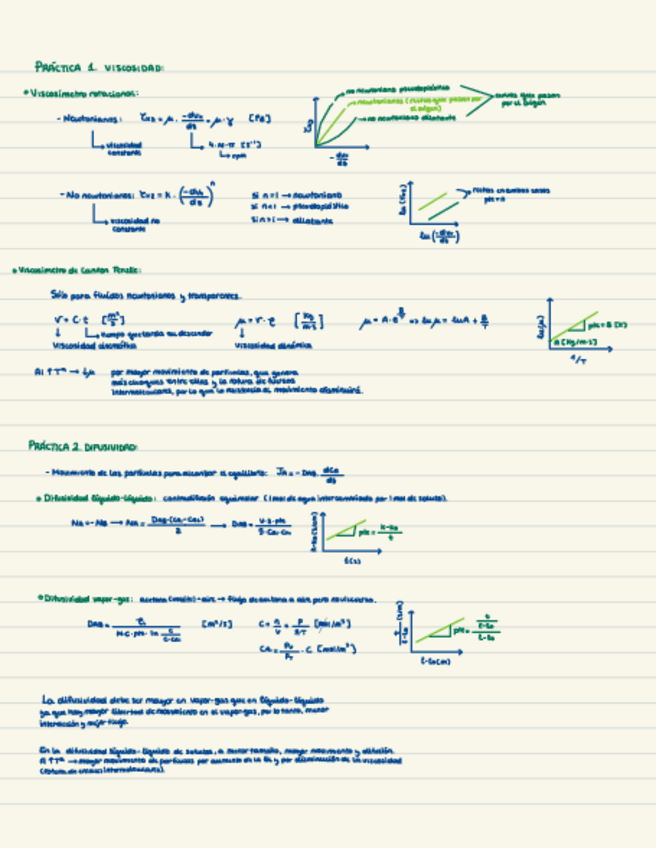 PRÁCTICA 1. VISCOSIDAD:
• Viscosímetro rotacional:
- Newtonianos: τxz = μ · -dvx/dz = μ · γ [Pa]
viscosidad constante
rpm
no newtoniano pseudoplástico
newtoniano (rectas que pasan por el origen)
no newtoniano dilatante
curvas que pasan por el origen
- dvx/dz
- No newtonianos: τxz = K · (-dvx/dz)^n
viscosidad no constante
si n=1 → newtoniano
si n<1 → pseudoplástico
si n>1 → dilatante
rectas en ambos casos
pte = n
ln(τxz)
ln(-dvx/dz)
• Viscosímetro de Cannon Fenske:
Sólo para fluidos newtonianos y transparentes.
V = C · t [m²/s]
tiempo que tarda en descender
viscosidad cinemática
μ = V · ρ [kg/m·s]
viscosidad dinámica
μ = A · e^(B/T) => ln μ = ln A + B/T
ln(μ)
pte = B (K)
A (kg/m·s)
1/T
Al ↑ Tª → ↓μ por mayor movimiento de partículas, que genera
más choques entre ellas y la rotura de fuerzas
intermoleculares, por lo que la resistencia al movimiento disminuirá.
PRÁCTICA 2. DIFUSIVIDAD:
- Movimiento de las partículas para alcanzar el equilibrio: JA = - DAB · dCA/dz
• Difusividad líquido-líquido: contradifusión equimolar (1 mol de agua intercambiado por 1 mol de soluto).
NA = -NB → NA = DAB·(CA1-CA2)/z → DAB =
pte = K-K0/t
t(s)
• Difusividad vapor-gas: acetona (vapor)-aire → flujo de acetona a aire, pero no viceversa.
DAB =
[m²/s]
C = n/V = P/R·T [mol/m³]
CA = Pv/PT · C [mol/m³]
pte =
L-L0(m)
La difusividad debe ser mayor en vapor-gas que en líquido-líquido
ya que hay mayor libertad de movimiento en el vapor-gas, por lo tanto, menor
interacción y mejor flujo.
En la difusividad líquido-líquido de solutos, a menor tamaño, mayor movimiento y difusión.
A ↑ Tª → mayor movimiento de partículas por aumento de la Ec y por disminución de la viscosidad
(rotura de enlaces intermoleculares).